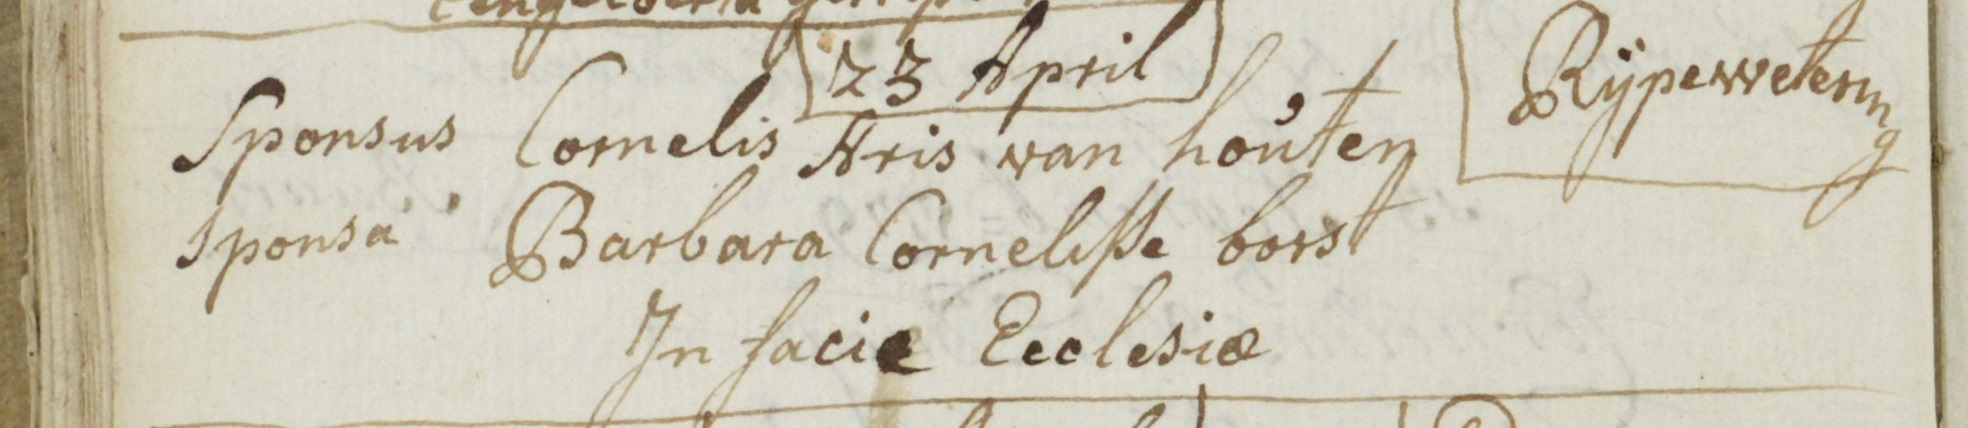 23 April
Rijpewetering
Sponsus Cornelis Aris van houten
Sponsa Barbara Cornelisse borst
In facie Ecclesiæ